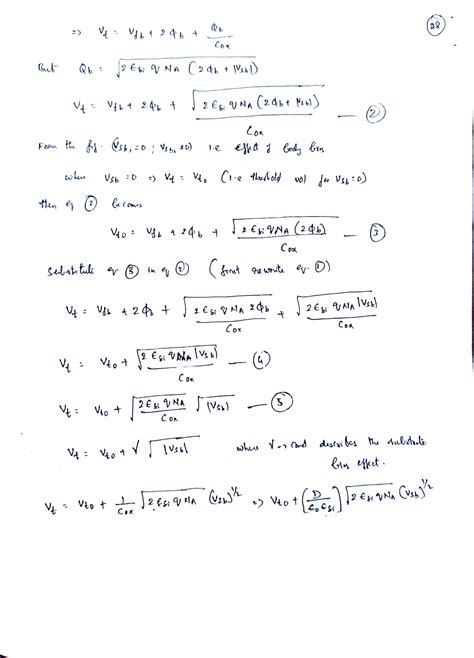 28
⇒ V_t = V_fb + 2ϕ_b + Q_b / C_ox
But Q_b = √(2 ϵ_si q N_A (2ϕ_b + |V_sb|))
V_t = V_fb + 2ϕ_b + √(2 ϵ_si q N_A (2ϕ_b + |V_sb|)) / C_ox — ②
From the fig. (V_sb1 = 0 ; V_sb2 ≠ 0) i.e effect of body bias
when V_sb = 0 ⇒ V_t = V_t0 (i.e threshold vol for V_sb = 0)
then eq ② becomes
V_t0 = V_fb + 2ϕ_b + √(2 ϵ_si q N_A (2ϕ_b)) / C_ox — ③
Substitute eq ③ in eq ② (first rewrite eq. ②)
V_t = V_fb + 2ϕ_b + √(2 ϵ_si q N_A 2ϕ_b) / C_ox + √(2 ϵ_si q N_A |V_sb|) / C_ox
V_t = V_t0 + √(2 ϵ_si q N_A |V_sb|) / C_ox — ④
V_t = V_t0 + √(2 ϵ_si q N_A) / C_ox √|V_sb| — ⑤
V_t = V_t0 + γ √|V_sb| where γ → const describes the substrate
bias effect.
V_t = V_t0 + 1/C_ox √(2 ϵ_si q N_A) (V_sb)^1/2 ⇒ V_t0 + [D / ϵ_0 ϵ_si] √(2 ϵ_si q N_A) (V_sb)^1/2